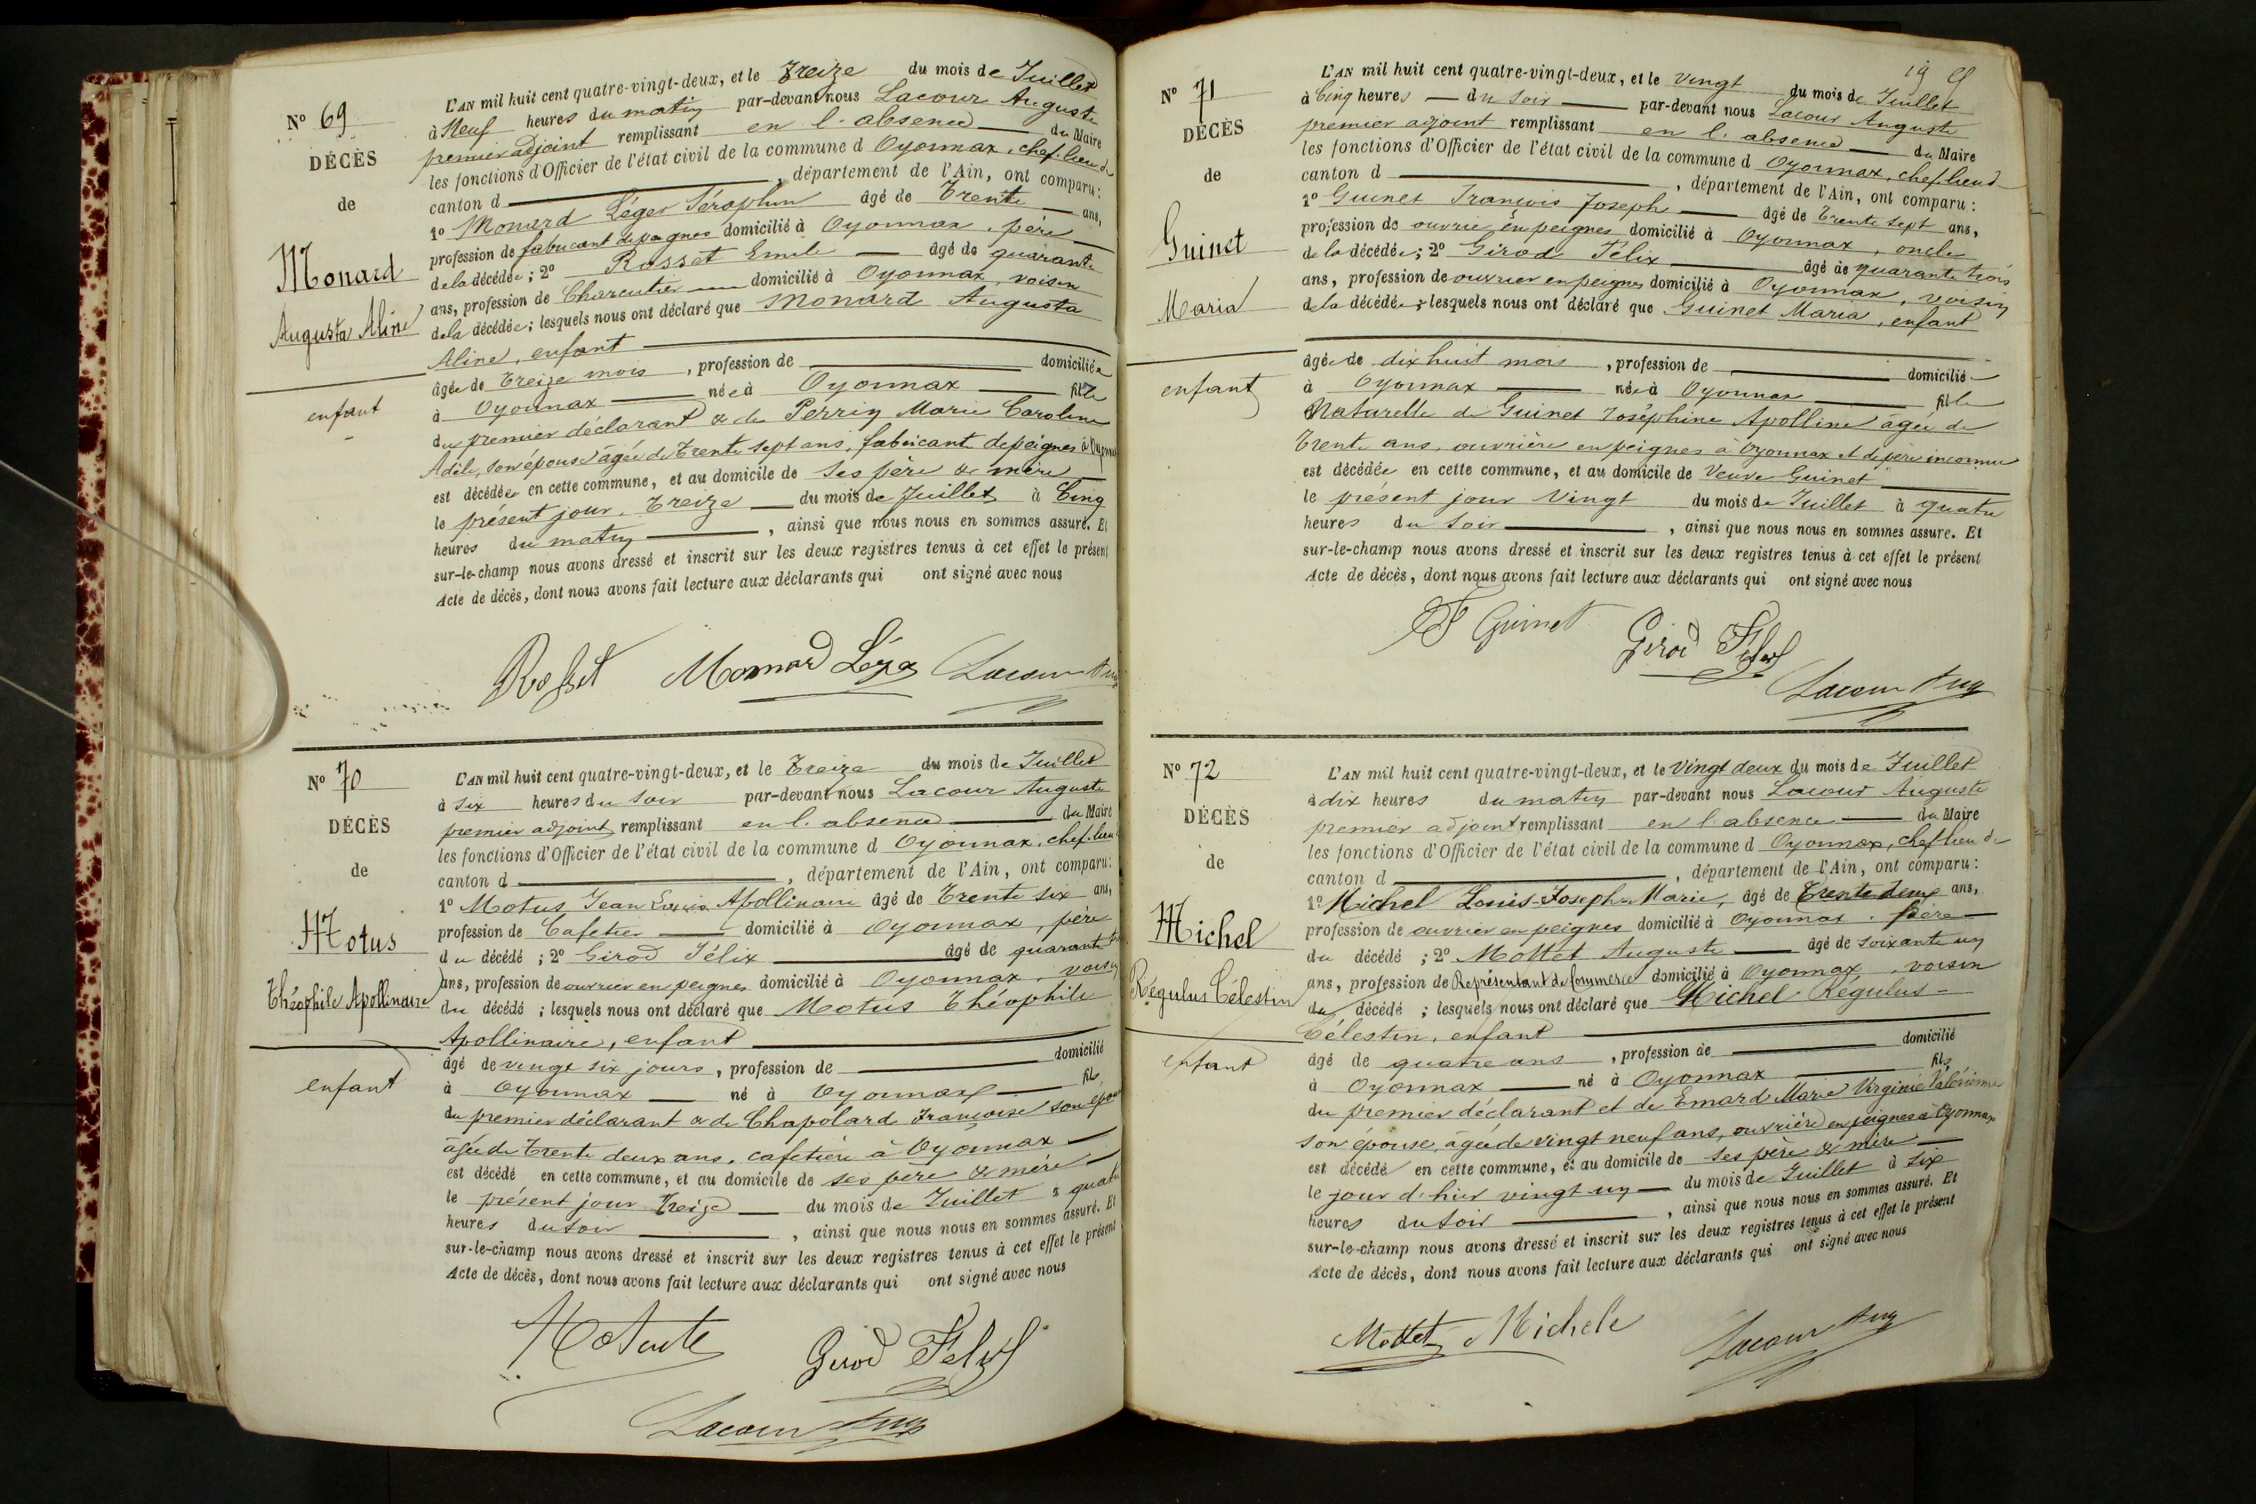 N° 69
DÉCÈS
de
Monard
Augusta Aline
enfant
L'AN mil huit cent quatre-vingt-deux, et le Treize du mois de Juillet
à Neuf heures du matin par-devant nous Lacour Auguste
premier adjoint remplissant en l'absence du Maire
les fonctions d'Officier de l'état civil de la commune d Oyonnax, chef-lieu de
canton d , département de l'Ain, ont comparu :
1° Monard Léger Séraphin âgé de Trente ans,
profession de fabricant de peignes domicilié à Oyonnax, père
de la décédée ; 2° Rosset Emile âgé de quarante
ans, profession de Charcutier domicilié à Oyonnax, voisin
de la décédée ; lesquels nous ont déclaré que Monard Augusta
Aline, enfant
âgée de Treize mois , profession de domiciliée
à Oyonnax née à Oyonnax fille
du premier déclarant & de Perrin Marie Caroline
Adèle, son épouse âgée de Trente sept ans, fabricante de peignes à Oyonnax
est décédée en cette commune, et au domicile de ses père & mère
le présent jour, Treize du mois de Juillet à Cinq
heures du matin , ainsi que nous nous en sommes assuré. Et
sur-le-champ nous avons dressé et inscrit sur les deux registres tenus à cet effet le présent
Acte de décès, dont nous avons fait lecture aux déclarants qui ont signé avec nous
Rosset Monard Léger Lacour Aug
N° 70
DÉCÈS
de
Motus
Théophile Apollinaire
enfant
L'AN mil huit cent quatre-vingt-deux, et le Treize du mois de Juillet
à six heures du soir par-devant nous Lacour Auguste
premier adjoint remplissant en l'absence du Maire
les fonctions d'Officier de l'état civil de la commune d Oyonnax, chef-lieu
canton d , département de l'Ain, ont comparu :
1° Motus Jean Louis Apollinaire âgé de Trente six ans,
profession de Cafetier domicilié à Oyonnax, père
du décédé ; 2° Girod Félix âgé de quarante
ans, profession de ouvrier en peignes domicilié à Oyonnax, voisin
du décédé ; lesquels nous ont déclaré que Motus Théophile
Apollinaire, enfant
âgé de vingt six jours, profession de domicilié
à Oyonnax né à Oyonnax fils
du premier déclarant & de Chapolard Françoise son épouse
âgée de Trente deux ans, cafetière à Oyonnax
est décédé en cette commune, et au domicile de ses père & mère
le présent jour Treize du mois de Juillet à quatre
heures du soir , ainsi que nous nous en sommes assuré. Et
sur-le-champ nous avons dressé et inscrit sur les deux registres tenus à cet effet le présent
Acte de décès, dont nous avons fait lecture aux déclarants qui ont signé avec nous
Girod Félix
Lacour Aug
19
N° 71
DÉCÈS
de
Guinet
Maria
enfant
L'AN mil huit cent quatre-vingt-deux, et le Vingt du mois de Juillet
à Cinq heures du soir par-devant nous Lacour Auguste
premier adjoint remplissant en l'absence du Maire
les fonctions d'Officier de l'état civil de la commune d Oyonnax, chef-lieu d
canton d , département de l'Ain, ont comparu :
1° Guinet François Joseph âgé de Trente sept ans,
profession de ouvrier en peignes domicilié à Oyonnax, oncle
de la décédée ; 2° Girod Félix âgé de quarante trois
ans, profession de ouvrier en peignes domicilié à Oyonnax, voisin
de la décédée ; lesquels nous ont déclaré que Guinet Maria, enfant
âgée de dix huit mois , profession de domicilié
à Oyonnax née à Oyonnax fille
Naturelle de Guinet Joséphine Apolline âgée de
Trente ans, ouvrière en peignes à Oyonnax et de père inconnu
est décédée en cette commune, et au domicile de Veuve Guinet
le présent jour Vingt du mois de Juillet à quatre
heures du soir , ainsi que nous nous en sommes assuré. Et
sur-le-champ nous avons dressé et inscrit sur les deux registres tenus à cet effet le présent
Acte de décès, dont nous avons fait lecture aux déclarants qui ont signé avec nous
F Guinet Girod Félix
Lacour Aug
N° 72
DÉCÈS
de
Michel
Régulus Célestin
enfant
L'AN mil huit cent quatre-vingt-deux, et le Vingt deux du mois de Juillet
à dix heures du matin par-devant nous Lacour Auguste
premier adjoint remplissant en l'absence du Maire
les fonctions d'Officier de l'état civil de la commune d Oyonnax, chef-lieu de
canton d , département de l'Ain, ont comparu :
1° Michel Louis-Joseph-Marie, âgé de Trente deux ans,
profession de ouvrier en peignes domicilié à Oyonnax, père
du décédé ; 2° Mottet Auguste âgé de soixante un
ans, profession de Représentant de Commerce domicilié à Oyonnax, voisin
du décédé ; lesquels nous ont déclaré que Michel Régulus-
Célestin, enfant
âgé de quatre ans , profession de domicilié
à Oyonnax né à Oyonnax fils
du premier déclarant et de Emard Marie Virginie Valérienne
son épouse, âgée de vingt neuf ans, ouvrière en peignes à Oyonnax
est décédé en cette commune, et au domicile de ses père & mère
le jour d'hier vingt un du mois de Juillet à six
heures du soir , ainsi que nous nous en sommes assuré. Et
sur-le-champ nous avons dressé et inscrit sur les deux registres tenus à cet effet le présent
Acte de décès, dont nous avons fait lecture aux déclarants qui ont signé avec nous
Mottet Michel
Lacour Aug